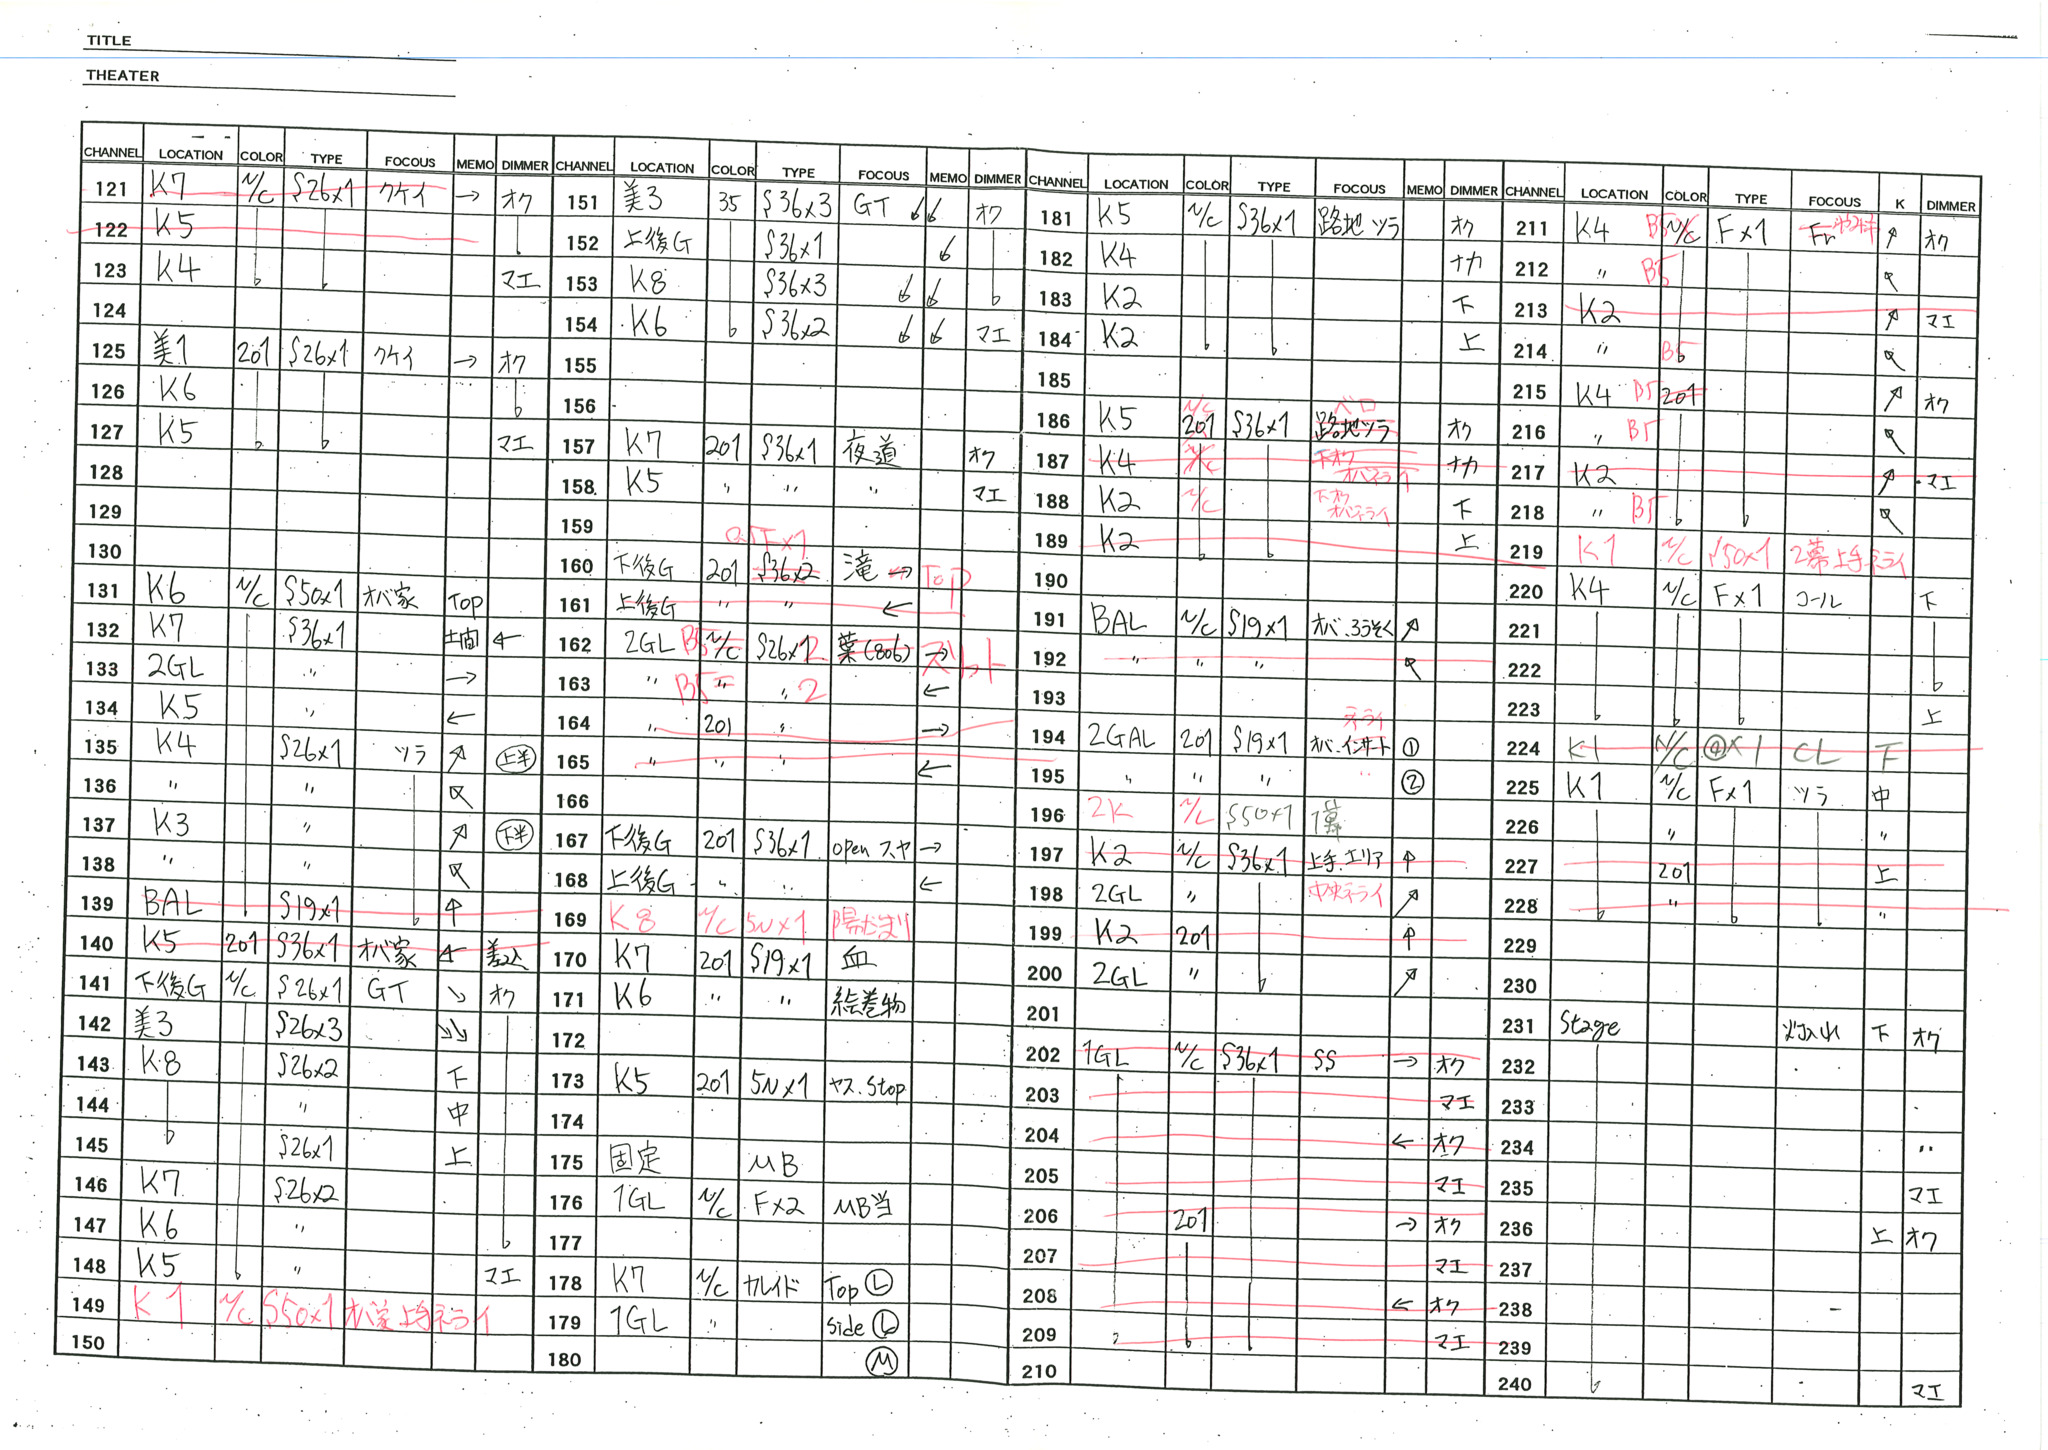 TITLE
THEATER
CHANNEL LOCATION COLOR TYPE FOCOUS MEMO DIMMER
121 K7 N/C S26x1 クケイ → オク
122 K5
123 K4 マエ
124
125 美1 201 S26x1 クケイ → オク
126 K6
127 K5 マエ
128
129
130
131 K6 N/C S50x1 オバ家 Top
132 K7 S36x1 土間 ←
133 2GL 〃 →
134 K5 〃 ←
135 K4 S26x1 ツラ ↗ 上半
136 〃 〃 ↖
137 K3 〃 ↗ 下半
138 〃 〃 ↖
139 BAL S19x1 ↑
140 K5 201 S36x1 オバ家 ← 差込
141 下後G N/C S26x1 GT ↘ オク
142 美3 S26x3 ↘↘
143 K8 S26x2 下
144 〃 中
145 S26x1 上
146 K7 S26x2
147 K6 〃
148 K5 〃 マエ
149 K1 N/C S50x1 オバ家上手ネライ
150
CHANNEL LOCATION COLOR TYPE FOCOUS MEMO DIMMER
151 美3 35 S36x3 GT ↙↙ オク
152 上後G S36x1 ↙
153 K8 S36x3 ↙↙
154 K6 S36x2 ↙↙ マエ
155
156
157 K7 201 S36x1 夜道 オク
158. K5 〃 〃 〃 マエ
159
160 下後G 201 S36x2 滝 → Top
161 上後G 〃 〃 ←
162 2GL B5 N/C S26x1 2 葉(806) →
163 〃 B5 〃 〃 2 ←
164 〃 201 〃 →
165 〃 〃 〃 ←
166
167 下後G 201 S36x1 open スヤ →
168 上後G 〃 〃 ←
169 K8 N/C 5Nx1 陽だまり
170 K7 201 S19x1 血
171 K6 〃 〃 絵巻物
172
173 K5 201 5Nx1 ヤス.Stop
174
175 固定 MB
176 1GL N/C Fx2 MB当
177
178 K7 N/C カレイド Top Ⓛ
179 1GL 〃 Side Ⓛ
180 Ⓜ
CHANNEL LOCATION COLOR TYPE FOCOUS MEMO DIMMER
181 K5 N/C S36x1 路地ツラ オク
182 K4 ナカ
183 K2 下
184 K2 上
185
186 K5 N/C 201 S36x1 ベロ 路地ツラ オク
187 K4 N/C 下オク オバネライ ナカ
188 K2 N/C 下オク オバネライ 下
189 K2 上
190
191 BAL N/C S19x1 オバ.ろうそく ↗
192 〃 〃 〃 ↖
193
194 2GAL 201 S19x1 ネライ オバ.インサート ①
195 〃 〃 〃 〃 ②
196 2K N/C S50x1 1幕
197 K2 N/C S36x1 上手.エリア ↑
198 2GL 〃 中央ネライ ↗
199 K2 201 ↑
200 2GL 〃 ↗
201
202 1GL N/C S36x1 SS → オク
203 マエ
204 ← オク
205 マエ
206 201 → オク
207 マエ
208 ← オク
209 マエ
210
CHANNEL LOCATION COLOR TYPE FOCOUS K DIMMER
211 K4 B5 N/C Fx1 Fr ↗ オク
212 〃 B5 ↖
213 K2 ↗ マエ
214 〃 B5 ↖
215 K4 B5 201 ↗ オク
216 〃 B5 ↖
217 K2 ↗ マエ
218 〃 B5 ↖
219 K1 N/C S50x1 2幕上手ネライ
220 K4 N/C Fx1 コール 下
221
222
223 上
224 K1 N/C x1 CL 下
225 K1 N/C Fx1 ツラ 中
226 〃 〃
227 201 上
228 〃 〃
229
230
231 Stage 灯入れ 下 オク
232
233
234 〃
235 マエ
236 上 オク
237
238
239
240 マエ